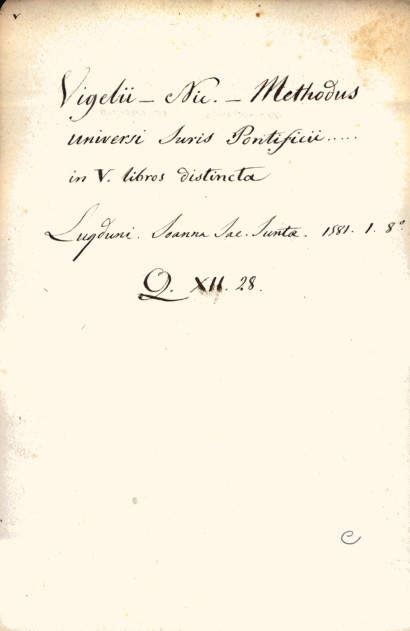 Vigelii - Nic. - Methodus
universi Juris Pontificii.....
in V. libros distincta
Lugduni. Joanna Jac. Juntæ. 1581. 1. 8°
Q. XII. 28.
C